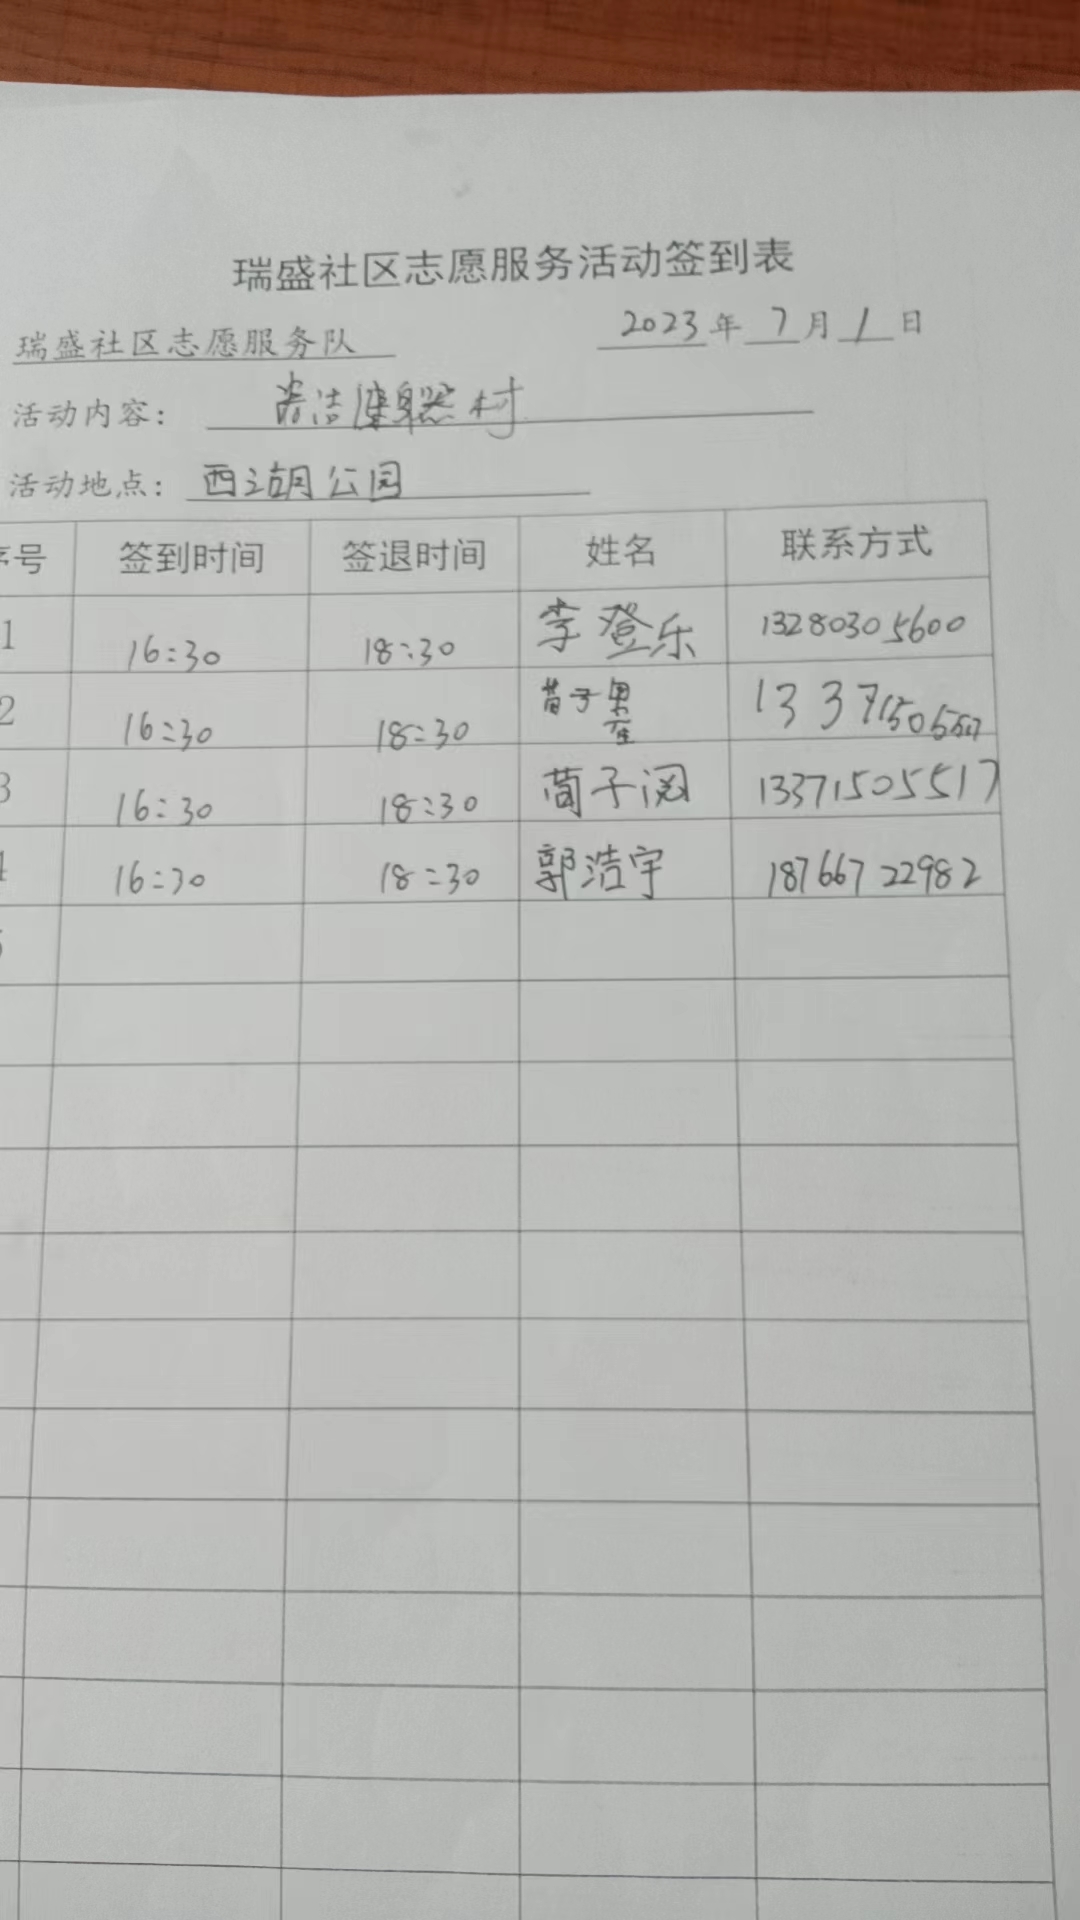 瑞盛社区志愿服务活动签到表
瑞盛社区志愿服务队 2023年7月1日
活动内容: 清洁健身器材
活动地点: 西湖公园
序号 签到时间 签退时间 姓名 联系方式
1 16:30 18:30 李登乐 13280305600
2 16:30 18:30 苗子 133715055
3 16:30 18:30 子涵 13371505517
4 16:30 18:30 郭浩宇 18766722982
5